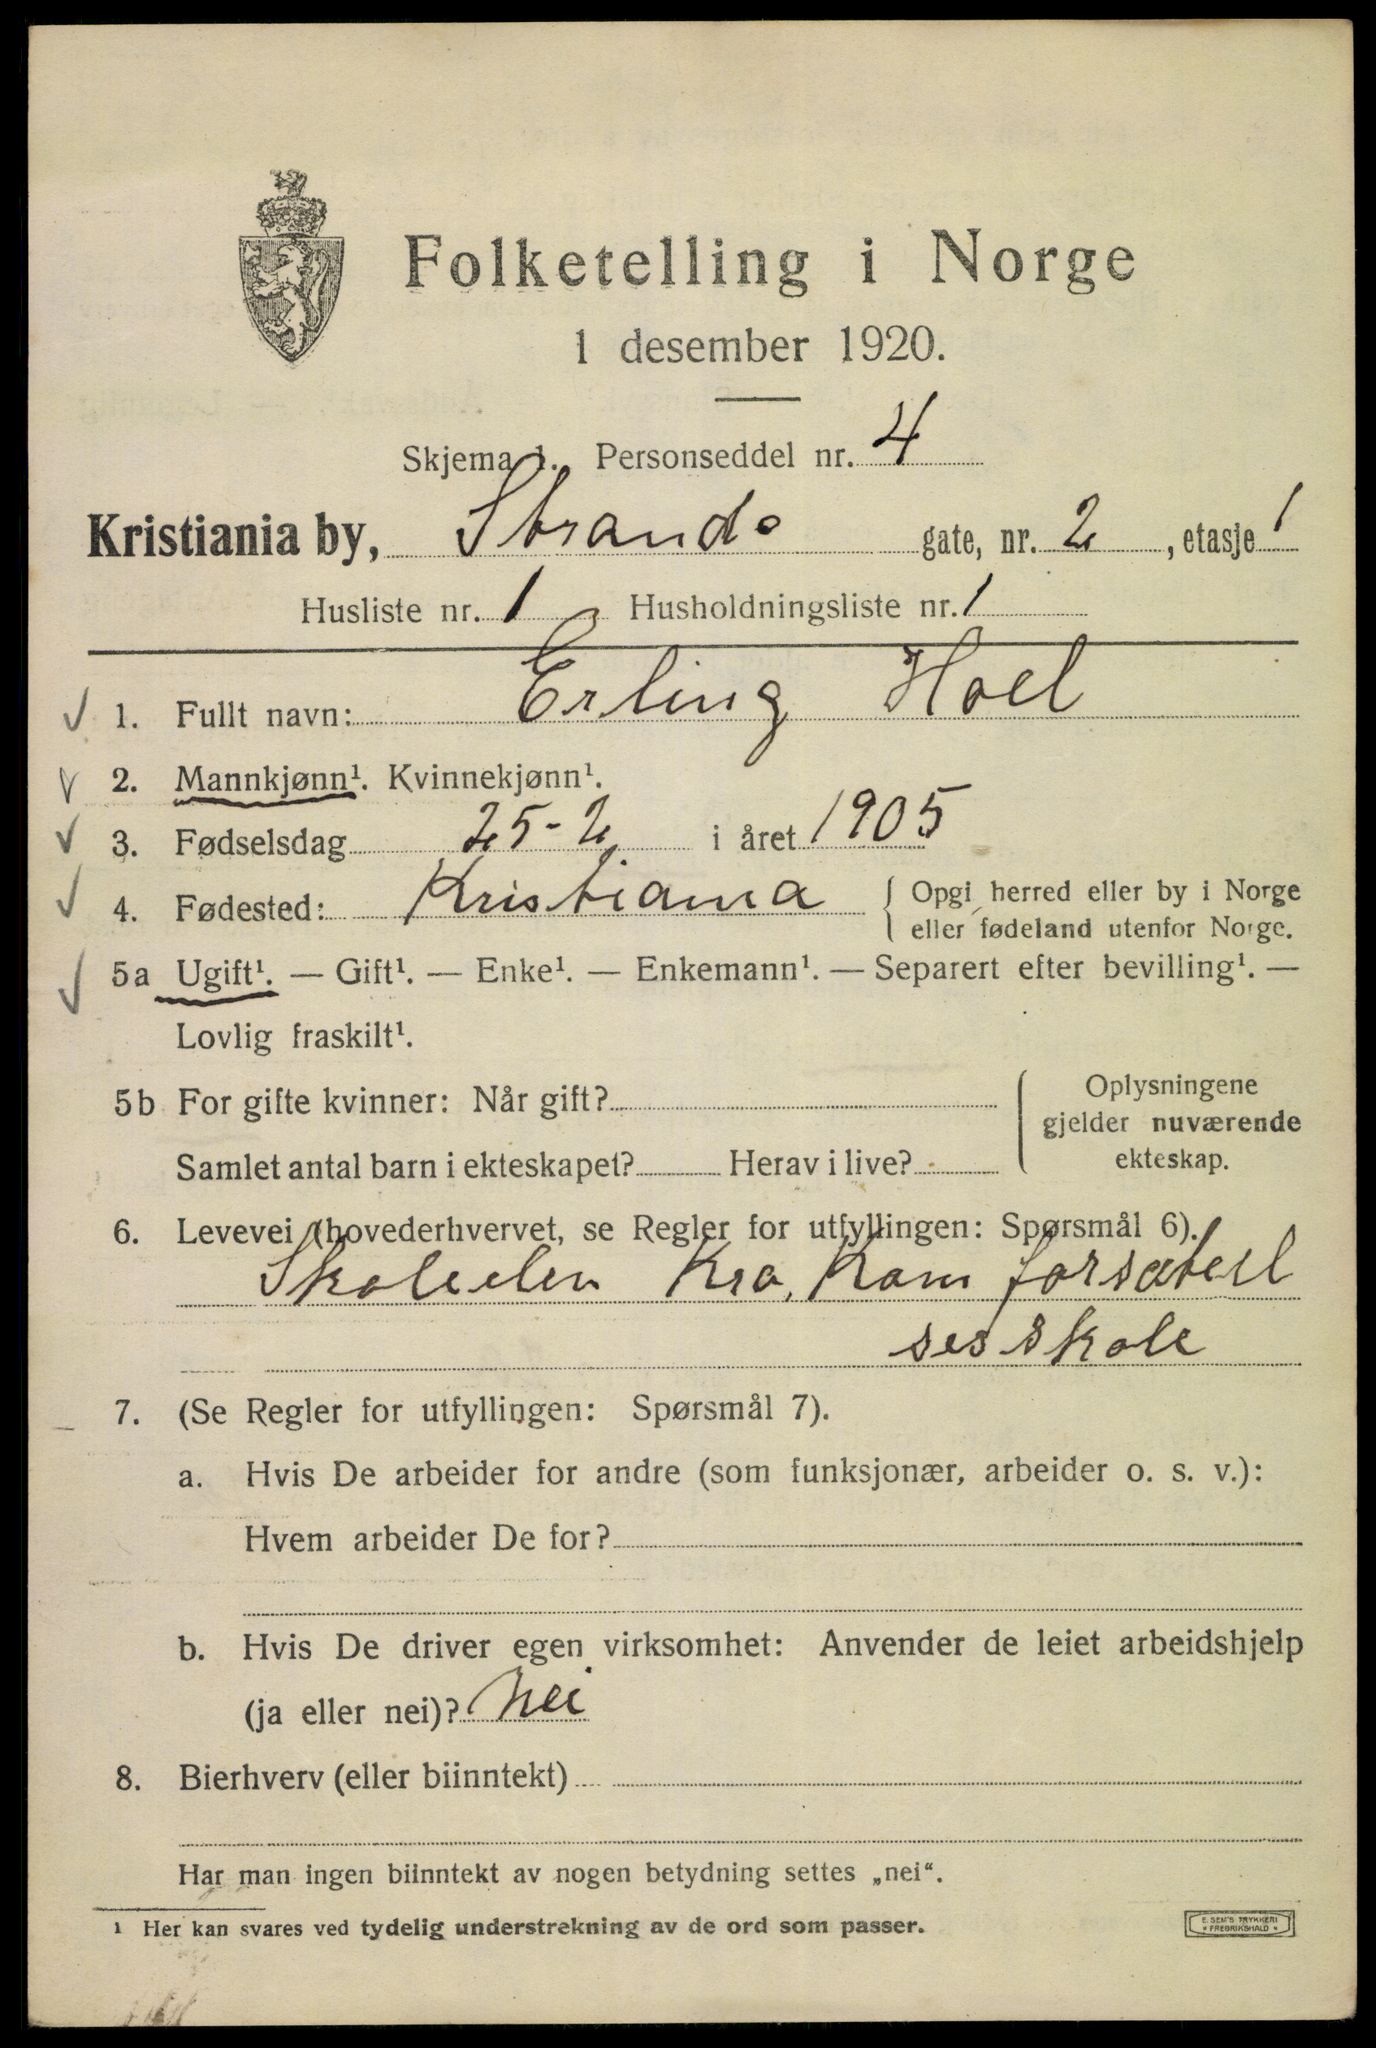 Folketelling i Norge
1 desember 1920.
Skjema 1. Personseddel nr. 4
Kristiania by, Strands gate, nr. 2, etasje 1
Husliste nr. 1 Husholdningsliste nr. 1
1. Fullt navn: Erling Hoel
2. Mannkjønn¹. Kvinnekjønn¹.
3. Fødselsdag 25-2 i året 1905
4. Fødested: Kristiania { Opgi herred eller by i Norge
eller fødeland utenfor Norge.
5a Ugift¹. — Gift¹. — Enke¹. — Enkemann¹. — Separert efter bevilling¹. —
Lovlig fraskilt¹.
5b For gifte kvinner: Når gift?
Samlet antal barn i ekteskapet? Herav i live?
Oplysningene
gjelder nuværende
ekteskap.
6. Levevei (hovederhvervet, se Regler for utfyllingen: Spørsmål 6).
Skoleelev Kra. Kom forsætel
sesskole
7. (Se Regler for utfyllingen: Spørsmål 7).
a. Hvis De arbeider for andre (som funksjonær, arbeider o. s. v.):
Hvem arbeider De for?
b. Hvis De driver egen virksomhet: Anvender de leiet arbeidshjelp
(ja eller nei)? Nei
8. Bierhverv (eller biinntekt)
Har man ingen biinntekt av nogen betydning settes „nei“.
¹ Her kan svares ved tydelig understrekning av de ord som passer.
E. SEM'S TRYKKERI
FREDRIKSHALD